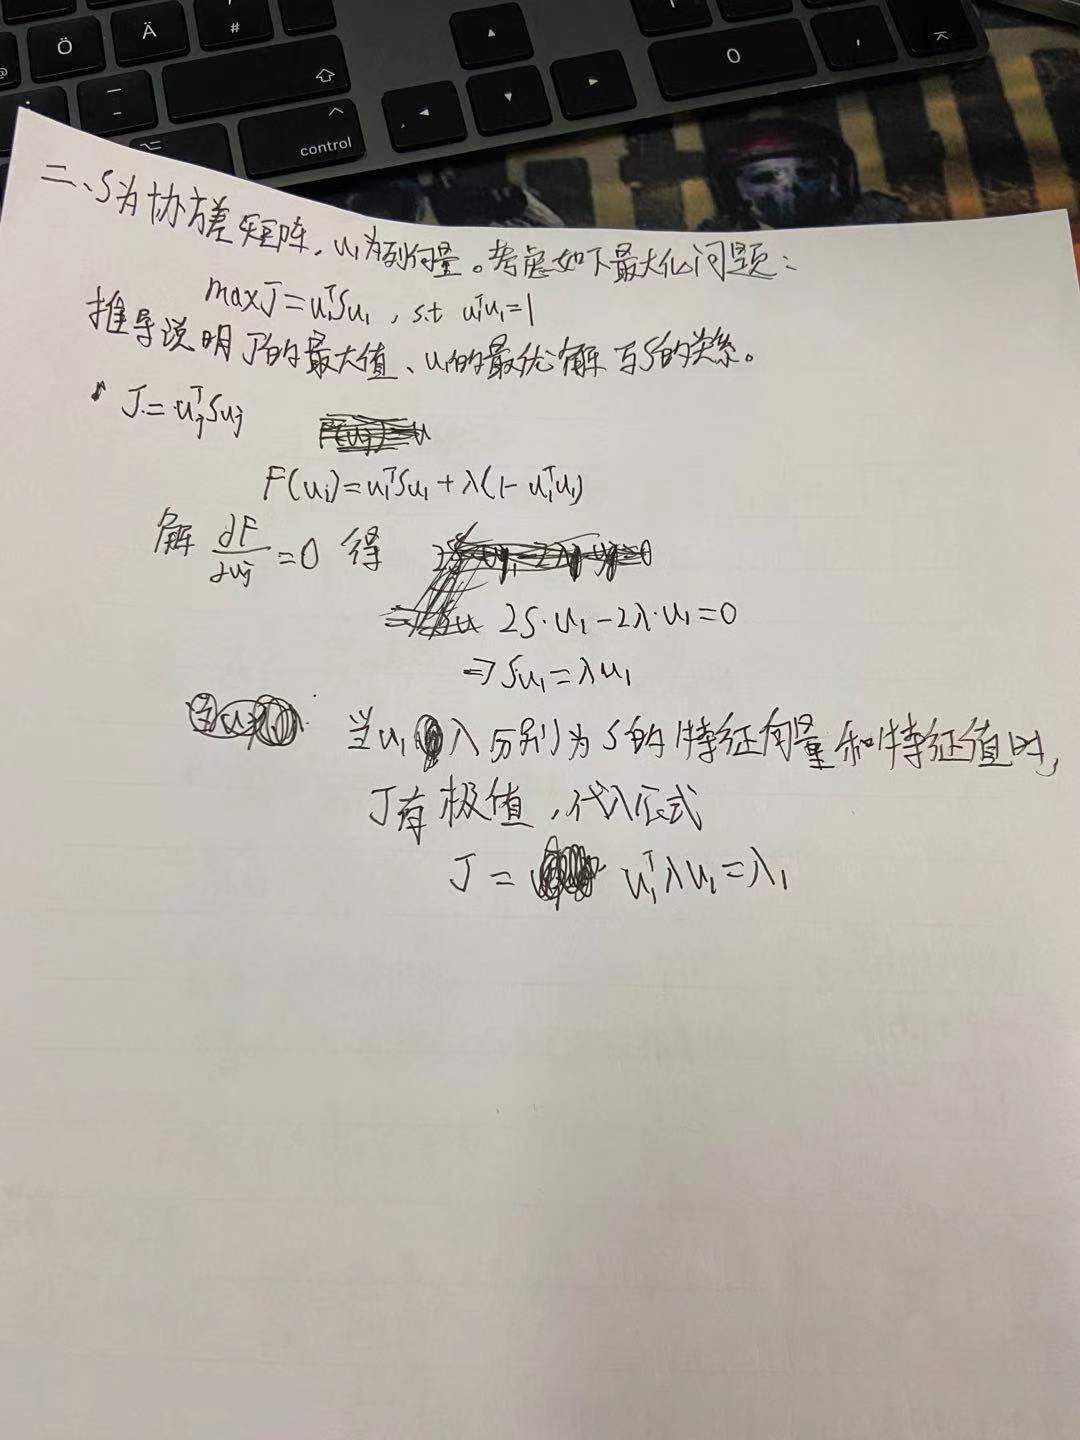 Ö
Ä
#
0
,
control
二、S为协方差矩阵，u₁为列向量。考虑如下最大化问题：
max J=u₁ᵀSu₁ , s.t u₁ᵀu₁=1
推导说明J的最大值、u₁的最优解与S的关系。
J=uⱼᵀSuⱼ
F(u₁)=u₁ᵀSu₁+λ(1-u₁ᵀu₁)
解 ∂F/∂uⱼ=0 得
2S·u₁-2λ·u₁=0
⇒Su₁=λu₁
当u₁ λ分别为S的特征向量和特征值时,
J有极值,代入原式
J= u₁ᵀλu₁=λ₁